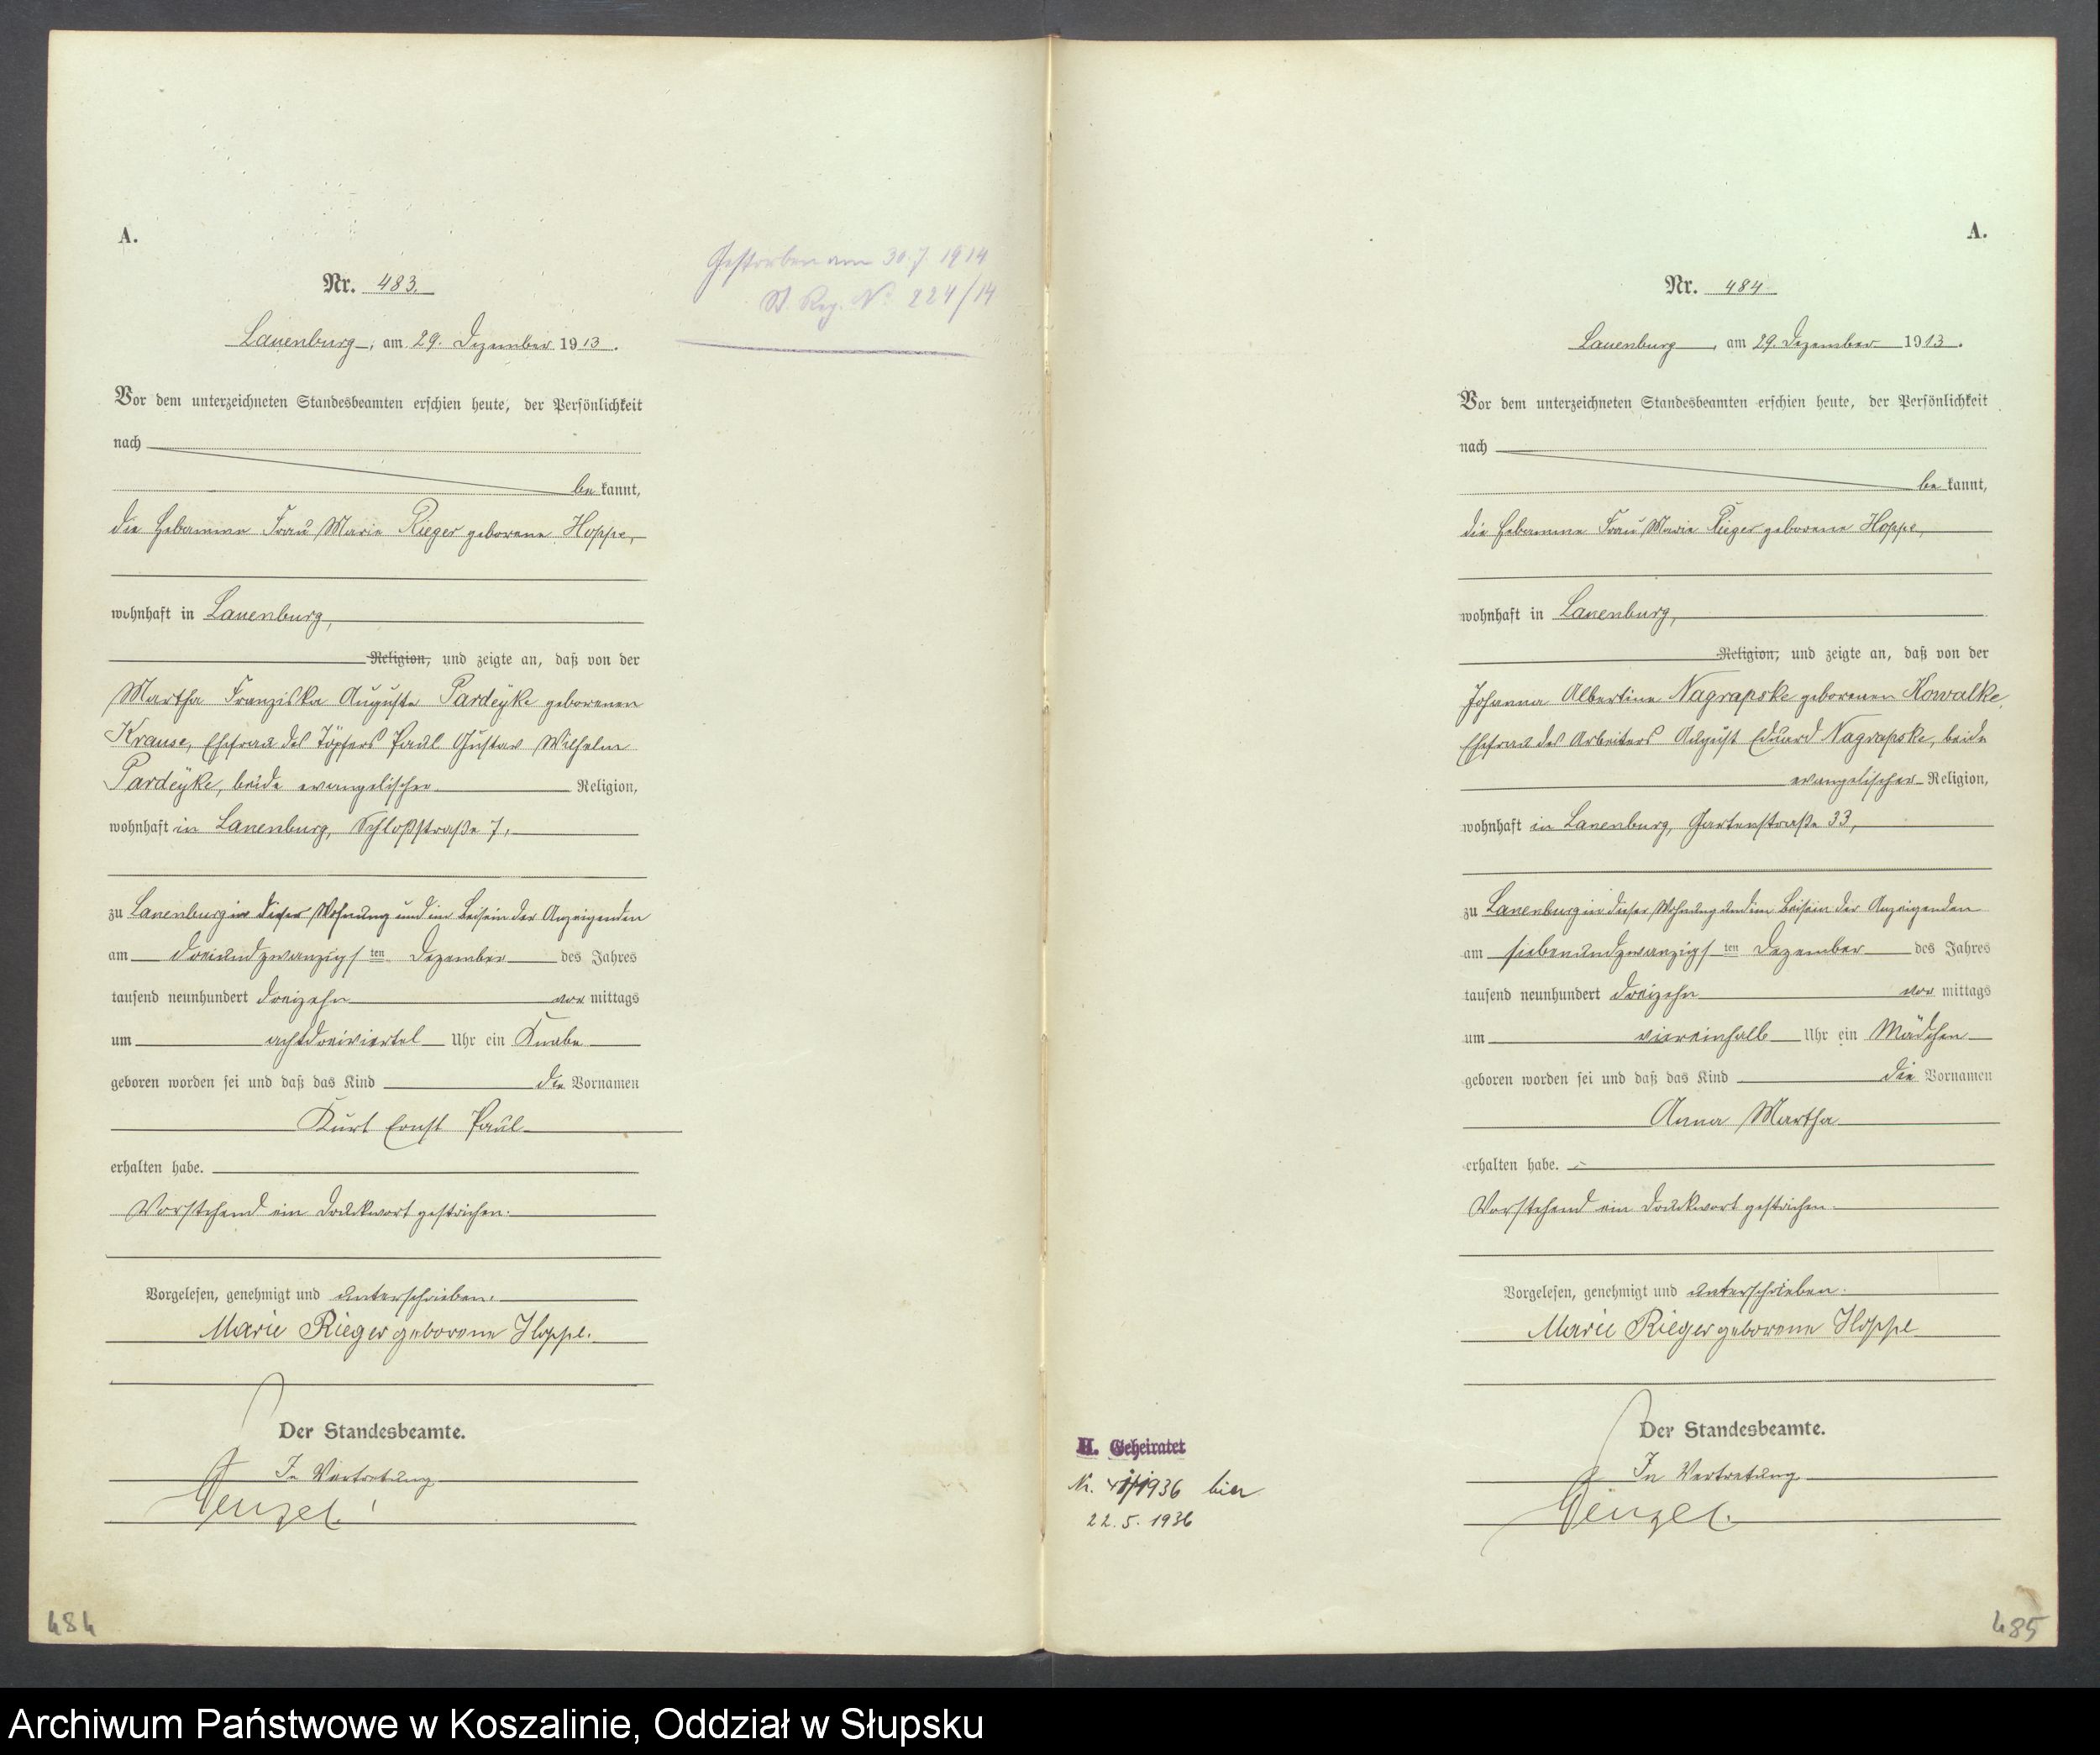 A.
Nr. 483.
Gestorben am 30.7.1914
St. Reg. Nr. 224/14
Lauenburg, am 29. Dezember 1913.
Vor dem unterzeichneten Standesbeamten erschien heute, der Persönlichkeit
nach
be kannt,
die Hebamme Frau Marie Rieger geborene Hoppe,
wohnhaft in Lauenburg,
Religion, und zeigte an, daß von der
Martha Franziska Auguste Pardeyke geborenen
Krause, Ehefrau des Töpfers Paul Gustav Wilhelm
Pardeyke, beide evangelischer Religion,
wohnhaft in Lauenburg, Schloßstraße 7,
zu Lauenburg in dieser Wohnung und im Beisein der Anzeigenden
am dreiundzwanzigsten Dezember des Jahres
tausend neunhundert dreizehn vor mittags
um achtdreiviertel Uhr ein Knabe
geboren worden sei und daß das Kind die Vornamen
Kurt Ernst Paul
erhalten habe.
Vorstehend ein Druckwort gestrichen.
Vorgelesen, genehmigt und unterschrieben.
Marie Rieger geborene Hoppe.
Der Standesbeamte.
In Vertretung
484
A.
Nr. 484
Lauenburg, am 29. Dezember 1913.
Vor dem unterzeichneten Standesbeamten erschien heute, der Persönlichkeit
nach
be kannt,
die Hebamme Frau Marie Rieger geborene Hoppe,
wohnhaft in Lauenburg,
Religion, und zeigte an, daß von der
Johanna Albertine Nagrapske geborenen Kowalke,
Ehefrau des Arbeiters August Eduard Nagrapske, beide
evangelischer Religion,
wohnhaft in Lauenburg, Gartenstraße 33,
zu Lauenburg in dieser Wohnung und im Beisein der Anzeigenden
am siebenundzwanzigsten Dezember des Jahres
tausend neunhundert dreizehn vor mittags
um viereinhalb Uhr ein Mädchen
geboren worden sei und daß das Kind die Vornamen
Anna Martha
erhalten habe.
Vorstehend ein Druckwort gestrichen.
Vorgelesen, genehmigt und unterschrieben.
Marie Rieger geborene Hoppe
Der Standesbeamte.
In Vertretung
H. Geheiratet
Nr. 1936 hier
22.5.1936
485
Archiwum Państwowe w Koszalinie, Oddział w Słupsku